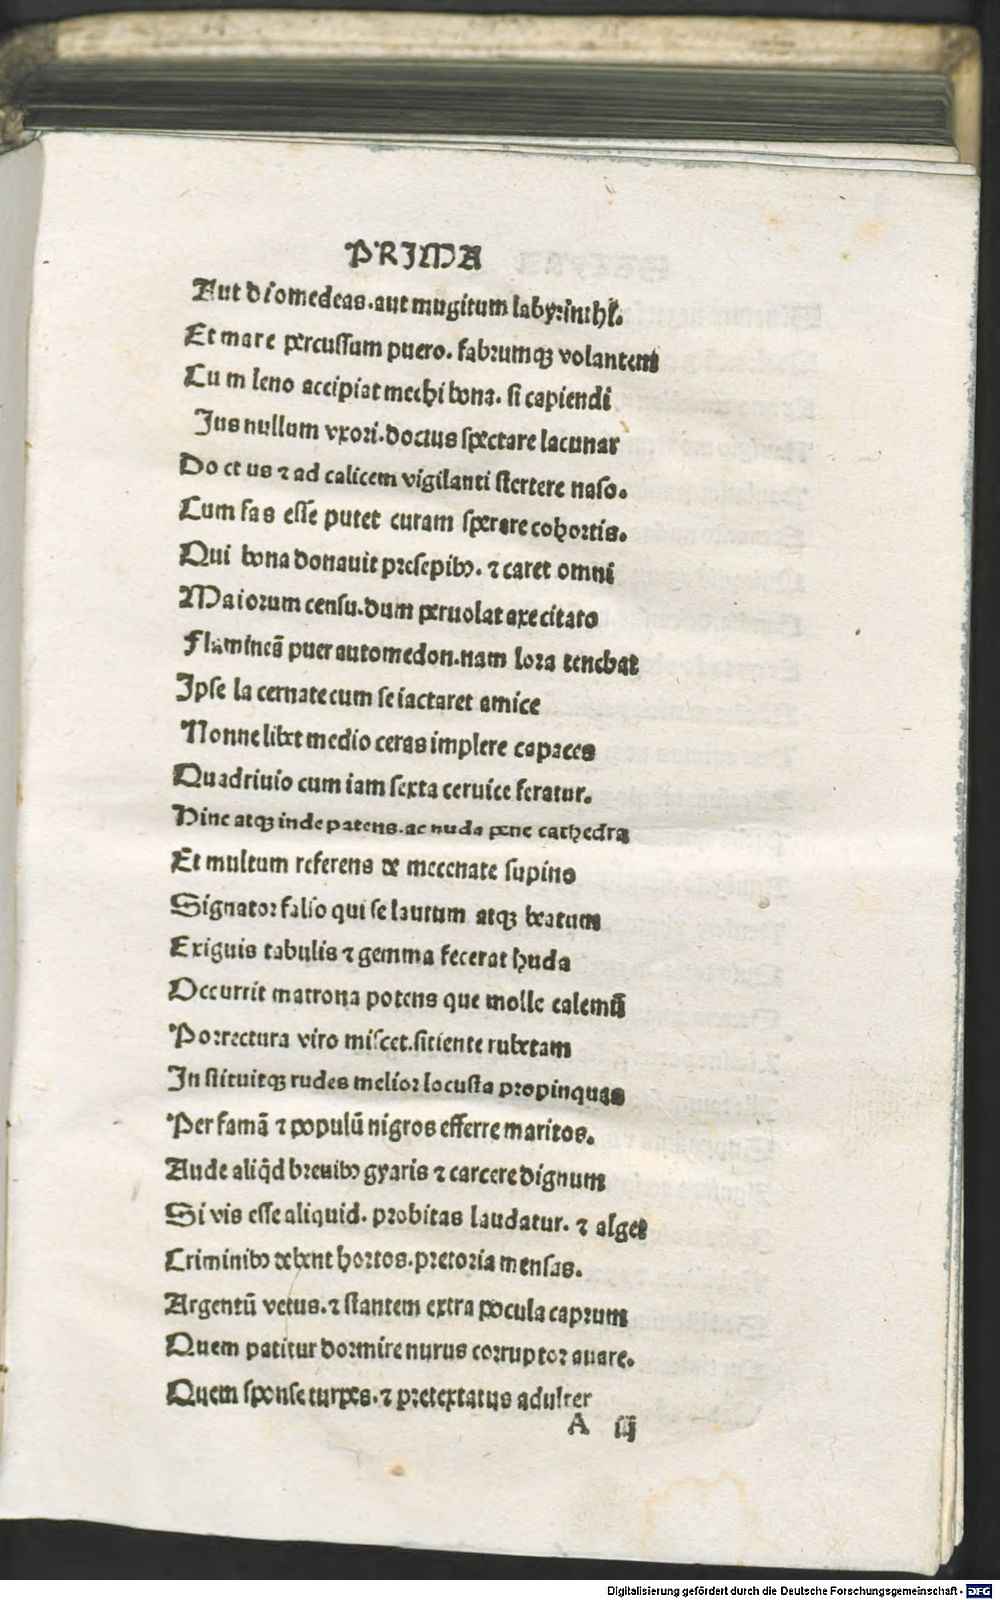 PRIMA
Aut diomedeas. aut mugitum labyrinthi.
Et mare percussum puero. fabrumqꝫ volantem
Cum leno accipiat mechi bona. si capiendi
Jus nullum vxori. doctus spectare lacunar
Doctus ⁊ ad calicem vigilanti stertere naso.
Cum fas esse putet curam sperare cohortis.
Qui bona donauit presepibꝰ. ⁊ caret omni
Maiorum censu. dum peruolat axe citato
Flamineā puer automedon. nam lora tenebat
Ipse lacernate cum se iactaret amice
Nonne libet medio ceras implere capaces
Quadriuio cum iam sexta ceruice feratur.
Hinc atqꝫ inde patens. ac nuda pene cathedra
Et multum referens de mecenate supino
Signator falso qui se lautum atqꝫ beatum
Exiguis tabulis ⁊ gemma fecerat huda
Occurrit matrona potens que molle calenū
Porrectura viro miscet. sitiente rubetam
Instituitqꝫ rudes melior locusta propinquas
Per famā ⁊ populū nigros efferre maritos.
Aude aliqd̄ breuibꝰ gyaris ⁊ carcere dignum
Si vis esse aliquid. probitas laudatur. ⁊ alget
Criminibꝰ debent hortos. pretoria mensas.
Argentū vetus. ⁊ stantem extra pocula caprum
Quem patitur dormire nurus corruptor auare.
Quem sponse turpes. ⁊ pretextatus adulter
A iij
Digitalisierung gefördert durch die Deutsche Forschungsgemeinschaft - DFG